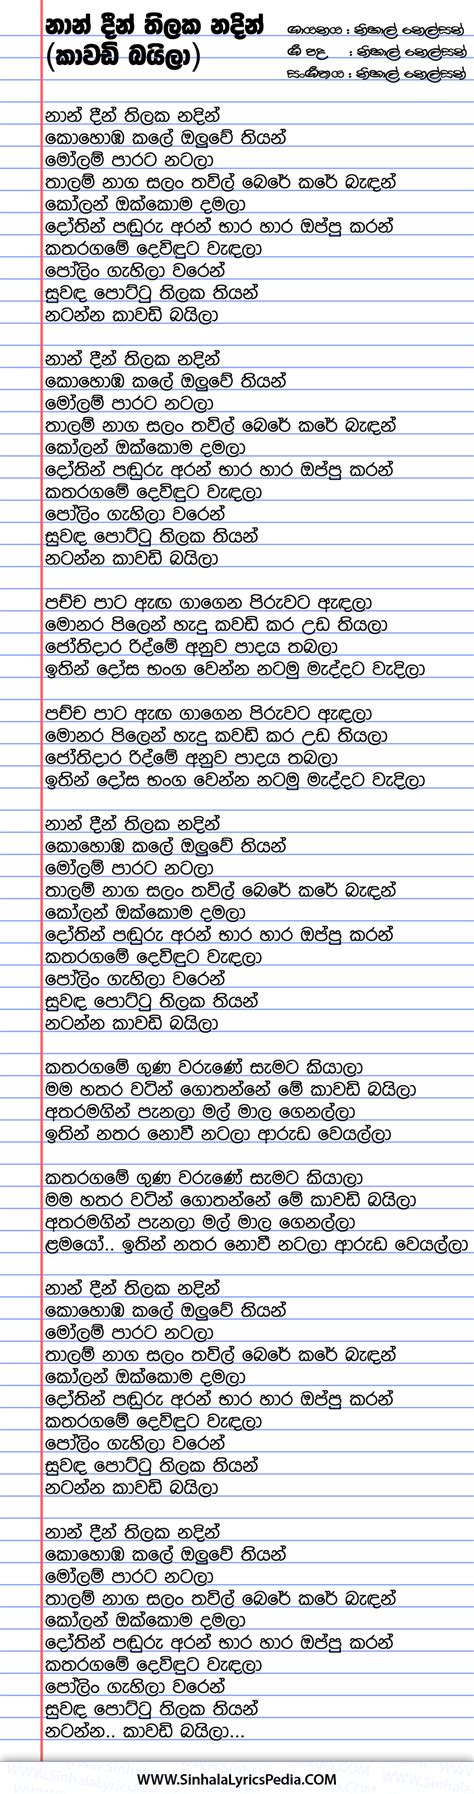 නාන් දීන් තිලක නදින්
(කාවඩි බයිලා)
ගායනය : නිහාල් නෙල්සන්
ගී පද : නිහාල් නෙල්සන්
සංගීතය : නිහාල් නෙල්සන්
නාන් දීන් තිලක නදින්
කොහොඹ කලේ ඔලුවේ තියන්
මෝලම් පාරට නටලා
තාලම් නාග සලං තවිල් බෙරේ කරේ බැඳන්
කෝලන් ඔක්කොම දමලා
දෝතින් පඬුරු අරන් භාර හාර ඔප්පු කරන්
කතරගමේ දෙවිඳුට වැඳලා
පෝලිං ගැහිලා වරෙන්
සුවඳ පොට්ටු තිලක තියන්
නටන්න කාවඩි බයිලා
නාන් දීන් තිලක නදින්
කොහොඹ කලේ ඔලුවේ තියන්
මෝලම් පාරට නටලා
තාලම් නාග සලං තවිල් බෙරේ කරේ බැඳන්
කෝලන් ඔක්කොම දමලා
දෝතින් පඬුරු අරන් භාර හාර ඔප්පු කරන්
කතරගමේ දෙවිඳුට වැඳලා
පෝලිං ගැහිලා වරෙන්
සුවඳ පොට්ටු තිලක තියන්
නටන්න කාවඩි බයිලා
පච්ච පාට ඇඟ ගාගෙන පිරුවට ඇඳලා
මොනර පිලෙන් හැදු කවඩි කර උඩ තියලා
ජෝතිදාර රිද්මේ අනුව පාදය තබලා
ඉතින් දෝස භංග වෙන්න නටමු මැද්දට වැදිලා
පච්ච පාට ඇඟ ගාගෙන පිරුවට ඇඳලා
මොනර පිලෙන් හැදු කවඩි කර උඩ තියලා
ජෝතිදාර රිද්මේ අනුව පාදය තබලා
ඉතින් දෝස භංග වෙන්න නටමු මැද්දට වැදිලා
නාන් දීන් තිලක නදින්
කොහොඹ කලේ ඔලුවේ තියන්
මෝලම් පාරට නටලා
තාලම් නාග සලං තවිල් බෙරේ කරේ බැඳන්
කෝලන් ඔක්කොම දමලා
දෝතින් පඬුරු අරන් භාර හාර ඔප්පු කරන්
කතරගමේ දෙවිඳුට වැඳලා
පෝලිං ගැහිලා වරෙන්
සුවඳ පොට්ටු තිලක තියන්
නටන්න කාවඩි බයිලා
කතරගමේ ගුණ වරුණේ සැමට කියාලා
මම හතර වටින් ගොතන්නේ මේ කාවඩි බයිලා
අතරමගින් පැනලා මල් මාල ගෙනල්ලා
ඉතින් නතර නොවී නටලා ආරුඩ වෙයල්ලා
කතරගමේ ගුණ වරුණේ සැමට කියාලා
මම හතර වටින් ගොතන්නේ මේ කාවඩි බයිලා
අතරමගින් පැනලා මල් මාල ගෙනල්ලා
ළමයෝ.. ඉතින් නතර නොවී නටලා ආරුඩ වෙයල්ලා
නාන් දීන් තිලක නදින්
කොහොඹ කලේ ඔලුවේ තියන්
මෝලම් පාරට නටලා
තාලම් නාග සලං තවිල් බෙරේ කරේ බැඳන්
කෝලන් ඔක්කොම දමලා
දෝතින් පඬුරු අරන් භාර හාර ඔප්පු කරන්
කතරගමේ දෙවිඳුට වැඳලා
පෝලිං ගැහිලා වරෙන්
සුවඳ පොට්ටු තිලක තියන්
නටන්න කාවඩි බයිලා
නාන් දීන් තිලක නදින්
කොහොඹ කලේ ඔලුවේ තියන්
මෝලම් පාරට නටලා
තාලම් නාග සලං තවිල් බෙරේ කරේ බැඳන්
කෝලන් ඔක්කොම දමලා
දෝතින් පඬුරු අරන් භාර හාර ඔප්පු කරන්
කතරගමේ දෙවිඳුට වැඳලා
පෝලිං ගැහිලා වරෙන්
සුවඳ පොට්ටු තිලක තියන්
නටන්න.. කාවඩි බයිලා...
WWW.SinhalaLyricsPedia.COM